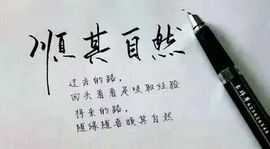 顺其自然
过去的路，
回头看看是吸取经验
将来的路，
随缘随喜顺其自然